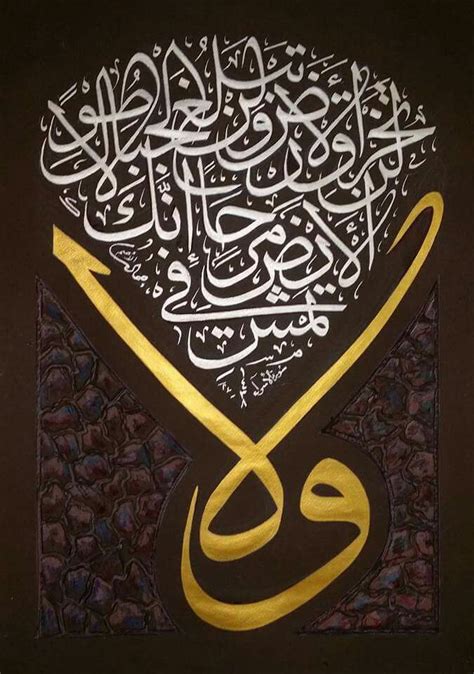 ولا
تمش في
الأرض مرحا إنك
لن تخرق الأرض ولن تبلغ الجبال طولا
سورة الإسراء